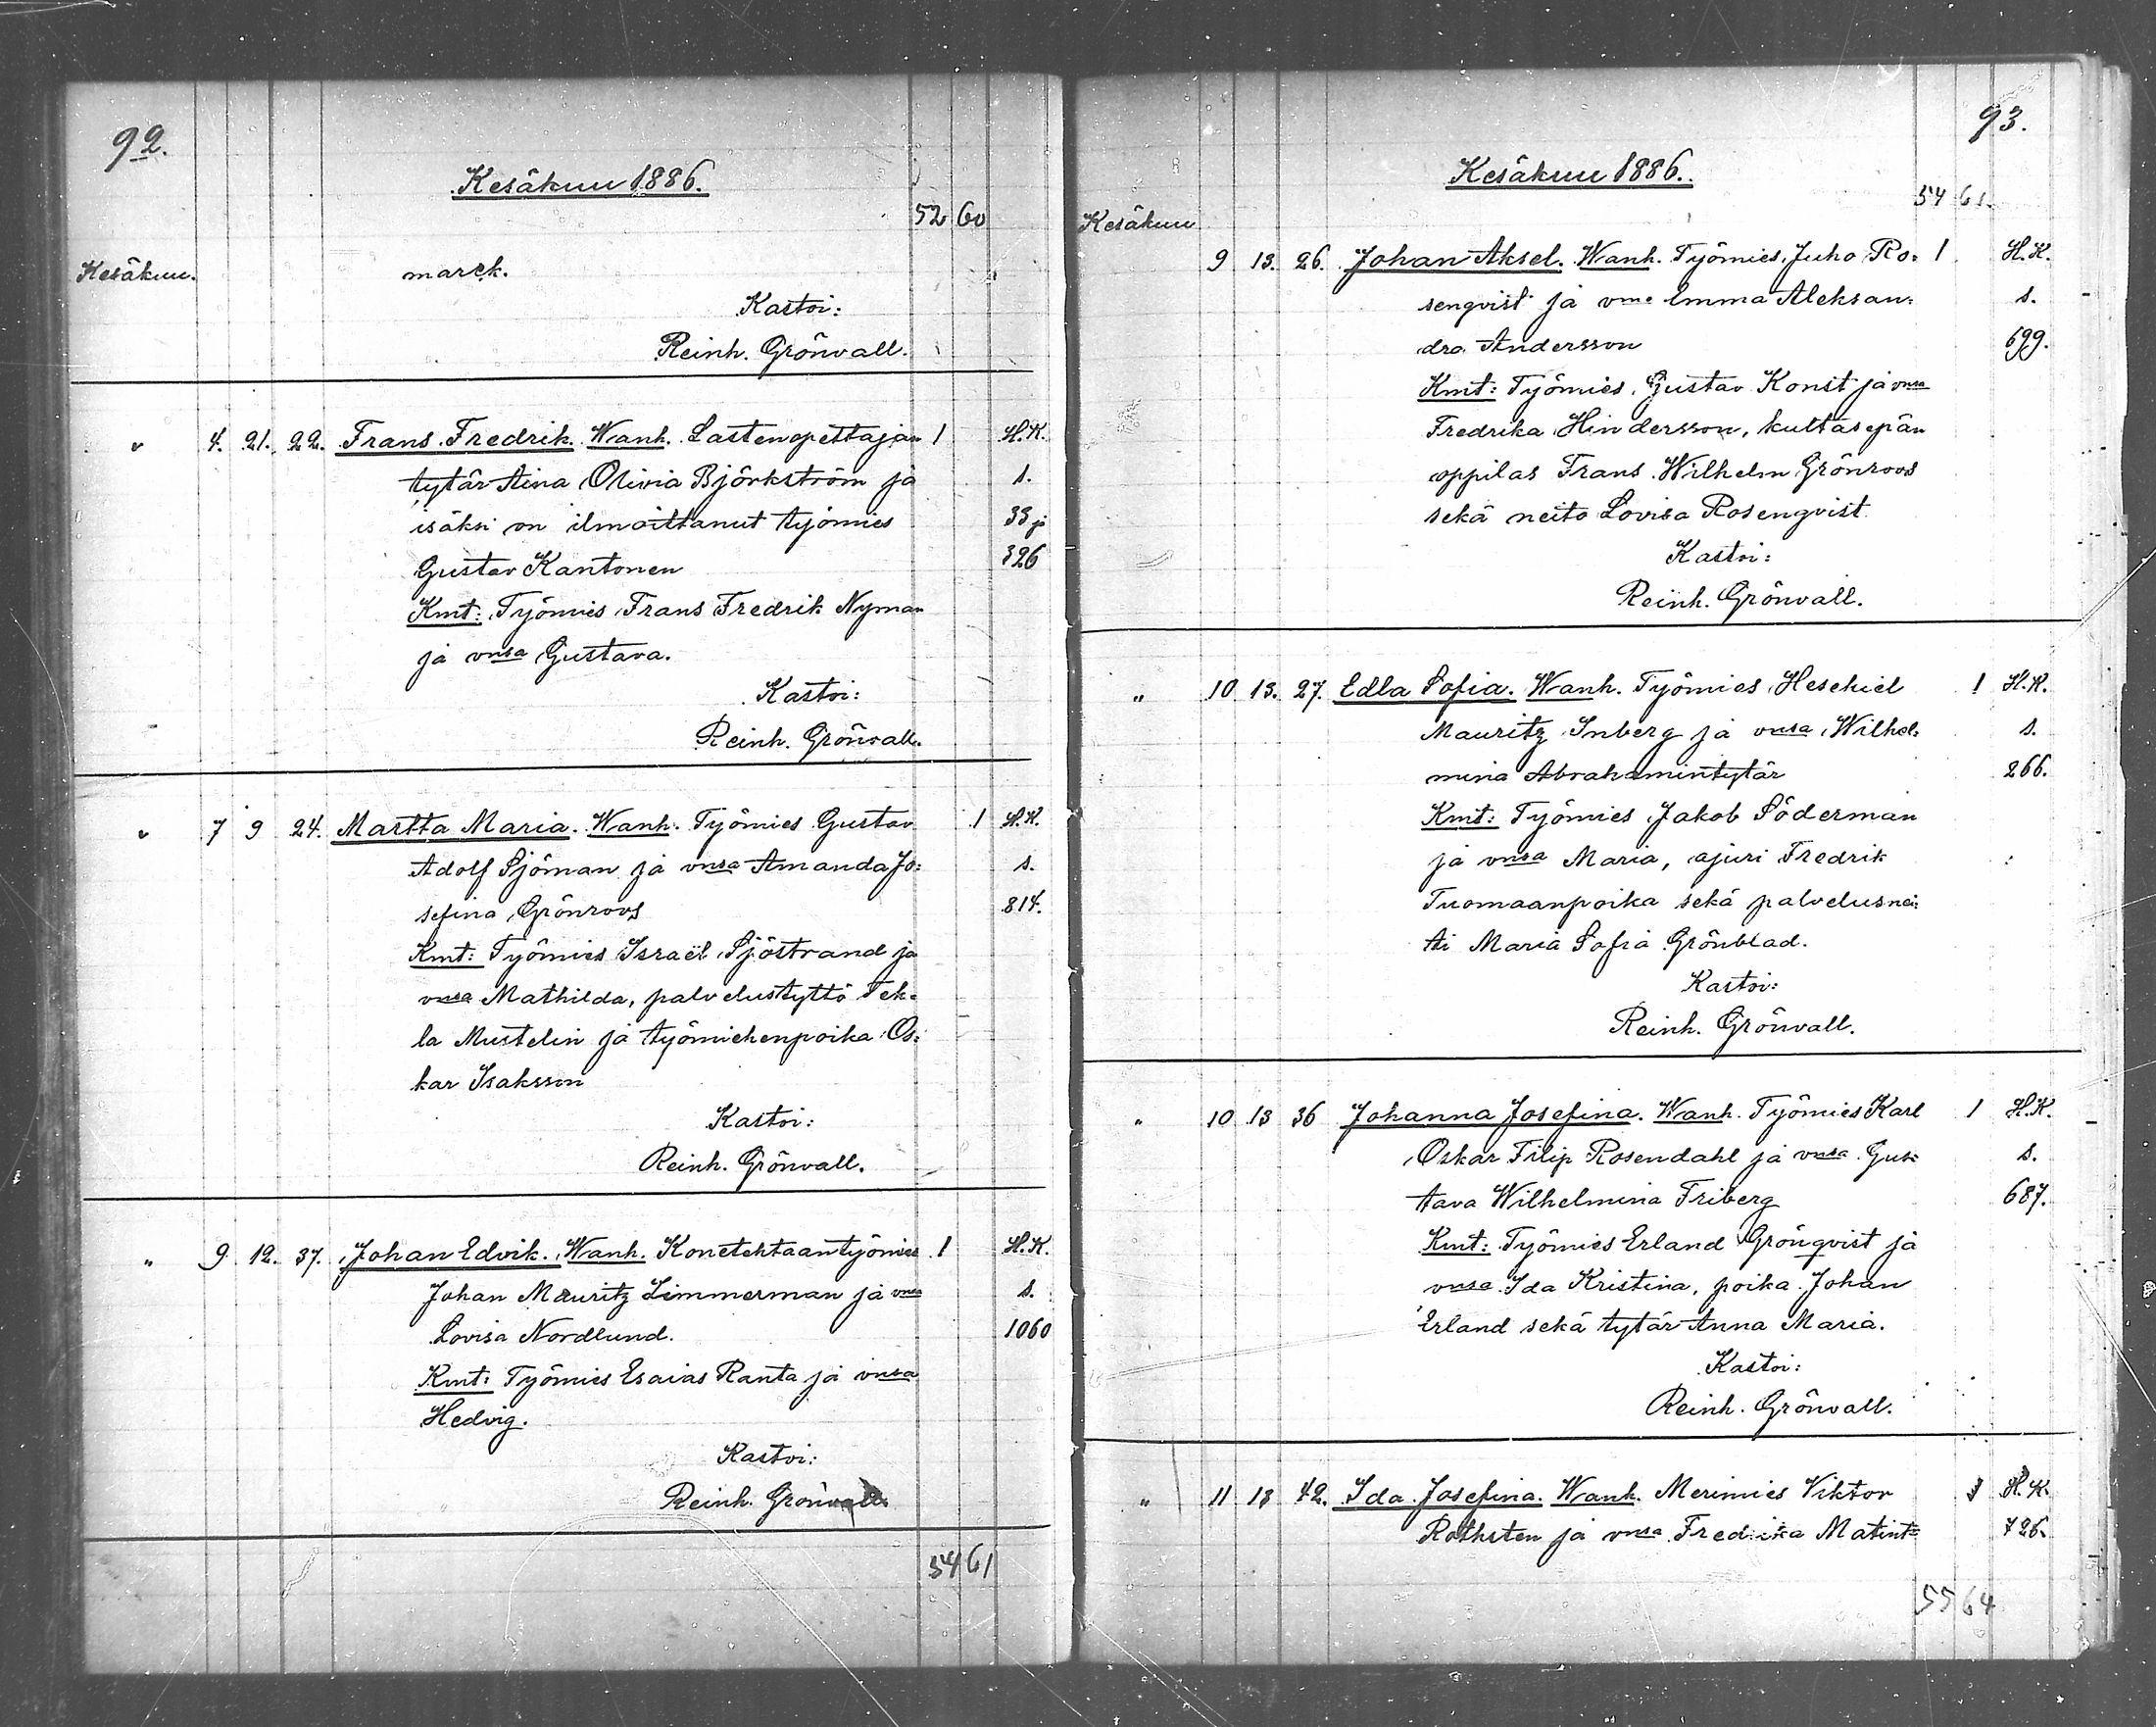 92.
Kesäkuu 1886.
52 60
Kesäkuu. marck.
Kastoi:
Reinh. Grönvall.
" 4. 21. 22. Frans Fredrik. Wanh. Lastenopettajan 1 H.K.
tytär Aina Olivia Björkström ja s.
isäksi on ilmoittanut työmies 33 ja
Gustav Kantonen 326
Kmt: Työmies Frans Fredrik Nyman
ja vnsa Gustava.
Kastoi:
Reinh. Grönvall.
" 7 9 24. Martta Maria. Wanh. Työmies Gustav 1 H.K.
Adolf Sjöman ja vnsa Amanda Jo: s.
sefina Grönroos 814.
Kmt: Työmies Israël Sjöstrand ja
vnsa Mathilda, palvelustyttö Tek=
la Mustelin ja työmiehenpoika Os:
kar Isaksson
Kastoi:
Reinh. Grönvall.
" 9 12. 37. Johan Edvik. Wanh. Konetehtaantyömies 1 H.K.
Johan Mauritz Limmerman ja vnsa s.
Lovisa Nordlund. 1060
Kmt: Työmies Esaias Ranta ja vnsa
Hedvig.
Kastoi:
Reinh. Grönvall.
54 61
93.
Kesäkuu 1886.
54 61.
Kesäkuu
9 13. 26. Johan Aksel. Wanh. Työmies Juho Ro= 1 H.K.
senqvist ja vmo Emma Aleksan= s.
dra Andersson 699.
Kmt: Työmies Gustav Konst ja vnsa
Fredrika Hindersson, kultasepän
oppilas Frans Wilhelm Grönroos
sekä neito Lovisa Rosenqvist
Kastoi:
Reinh. Grönvall.
" 10 13. 27. Edla Sofia. Wanh. Työmies Hesekiel 1 H.K.
Mauritz Inberg ja vnsa Wilhel= s.
mina Abrahamintytär 266.
Kmt: Työmies Jakob Söderman
ja vnsa Maria, ajuri Fredrik
Tuomaanpoika sekä palvelusnei:
ti Maria Sofia Grönblad.
Kastoi:
Reinh. Grönvall.
" 10 13 36 Johanna Josefina. Wanh. Työmies Karl 1 H.K.
Oskar Filip Rosendahl ja vnsa Gus= s.
tava Wilhelmina Friberg 687.
Kmt: Työmies Erland Grönqvist ja
vnsa Ida Kristina, poika Johan
Erland sekä tytär Anna Maria.
Kastoi:
Reinh. Grönvall.
" 11 13 42. Ida Josefina. Wanh. Merimies Viktor 1 H.K.
Rothsten ja vnsa Fredrika Matint= 726.
55 64